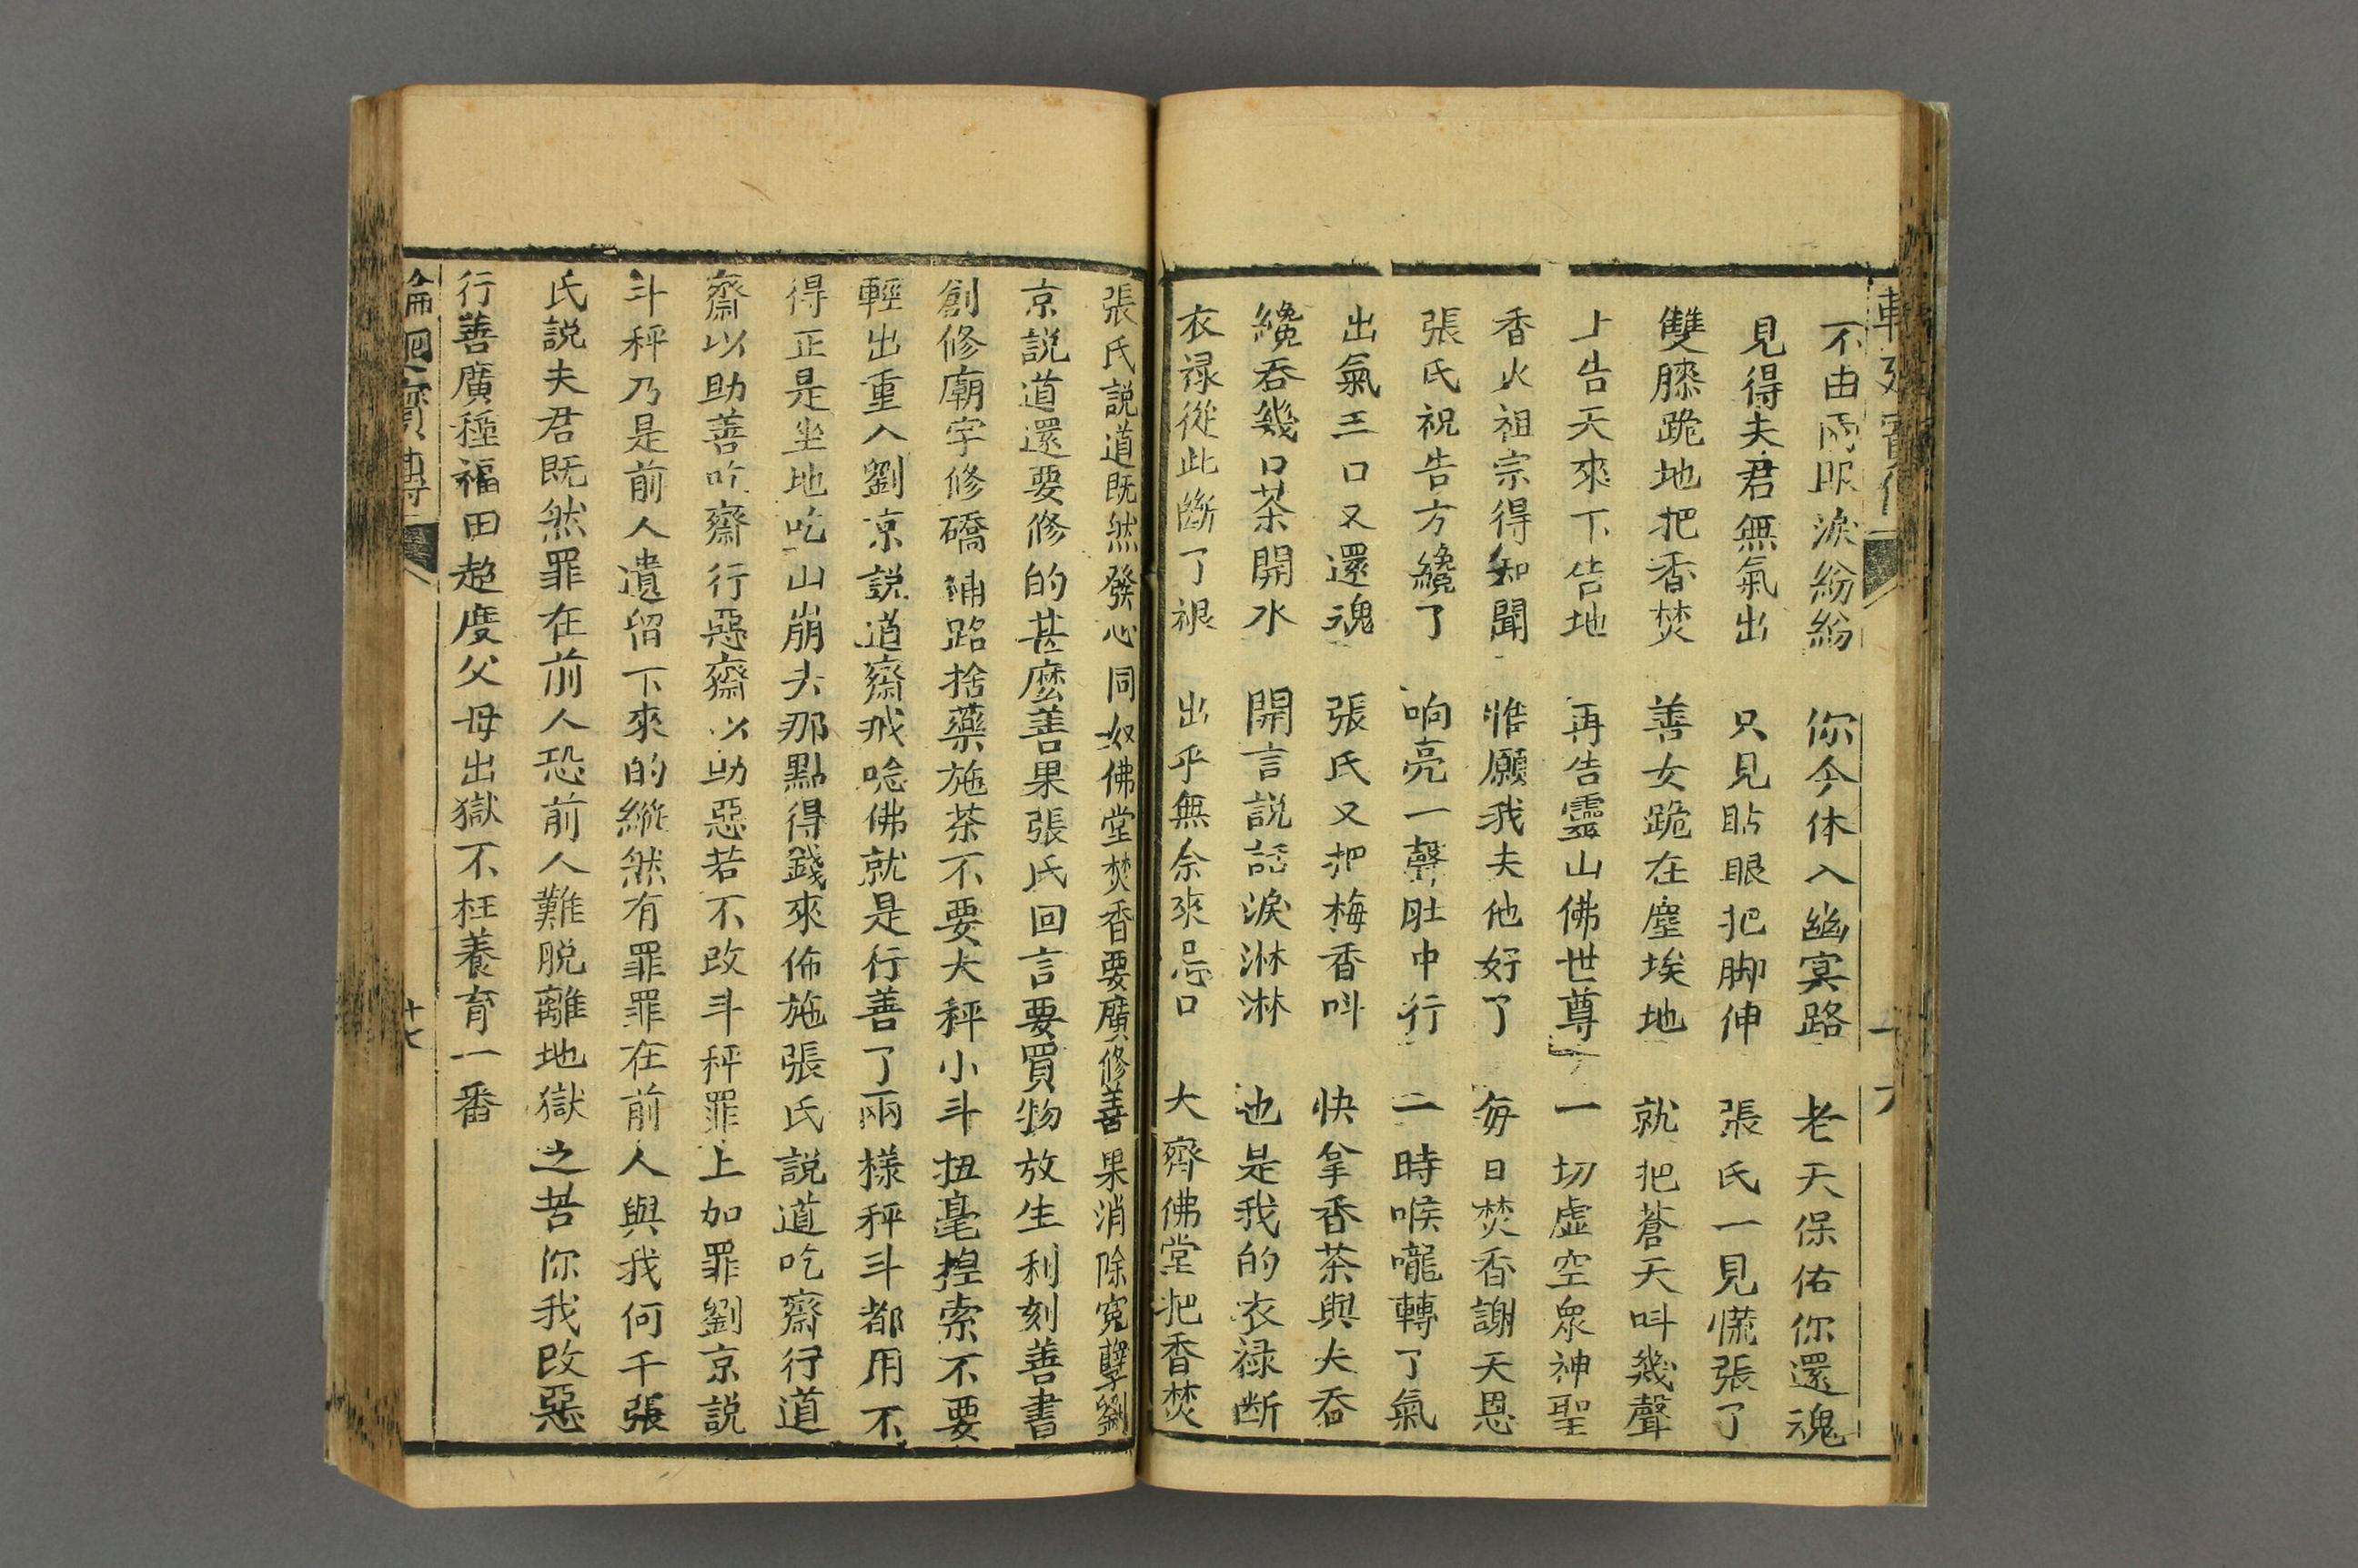 不由兩眼淚紛紛 你今休入幽冥路 老天保佑你還魂
見得夫君無氣出 只見貼眼把脚伸 張氏一見慌張了
雙膝跪地把香焚 善女跪在塵埃地 就把蒼天叫幾聲
上告天來下告地 再告靈山佛世尊 一切虚空眾神聖
香火祖宗得知聞 惟願我夫他好了 每日焚香謝天恩
張氏祝告方纔了 响亮一聲肚中行 二時喉嚨轉了氣
出氣三口又還魂 張氏又把梅香叫 快拿香茶與夫吞
纔吞幾口茶開水 開言説話淚淋淋 也是我的衣禄断
衣禄從此断了根 出乎無奈來忌口 大齊佛堂把香焚
張氏説道既然發心同奴佛堂焚香要廣修善果消除寃孽劉
京説道還要修的甚麽善果張氏回言要買物放生利刻善書
創修廟宇修磚補路捨藥施茶不要大秤小斗扭毫揑索不要
輕出重入劉京説道齋戒唸佛就是行善了兩樣秤斗都用不
得正是坐地吃山崩去那點得錢來佈施張氏説道吃齋行道
齋以助善吃齋行惡齋以助惡若不改斗秤罪上加罪劉京説
斗秤乃是前人遺留下來的縱然有罪罪在前人與我何干張
氏説夫君既然罪在前人恐前人難脱離地獄之苦你我改惡
行善廣種福田超度父母出獄不枉養育一番
輪廻寳傳 十七